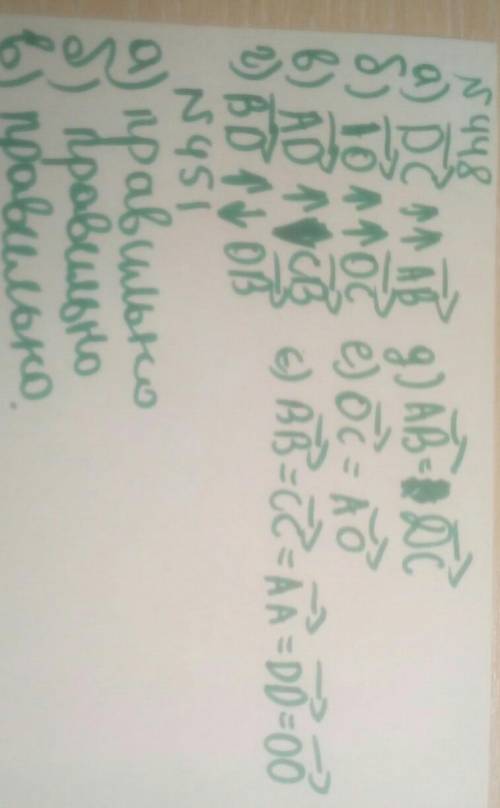 N 448
а) D͞C⃗ ↑↑ A͞B⃗ д) A͞B⃗ = D͞C⃗
б) O⃗ ↑↑ O͞C⃗ е) O͞C⃗ = A͞O⃗
в) A͞D⃗ ↑ C͞B⃗ є) B͞B⃗ = C͞C⃗ = A͞A⃗ = D͞D⃗ = O͞O⃗
г) B͞D⃗ ↑↓ D͞B⃗
N 451
а) правильно
б) правильно
в) правильно.